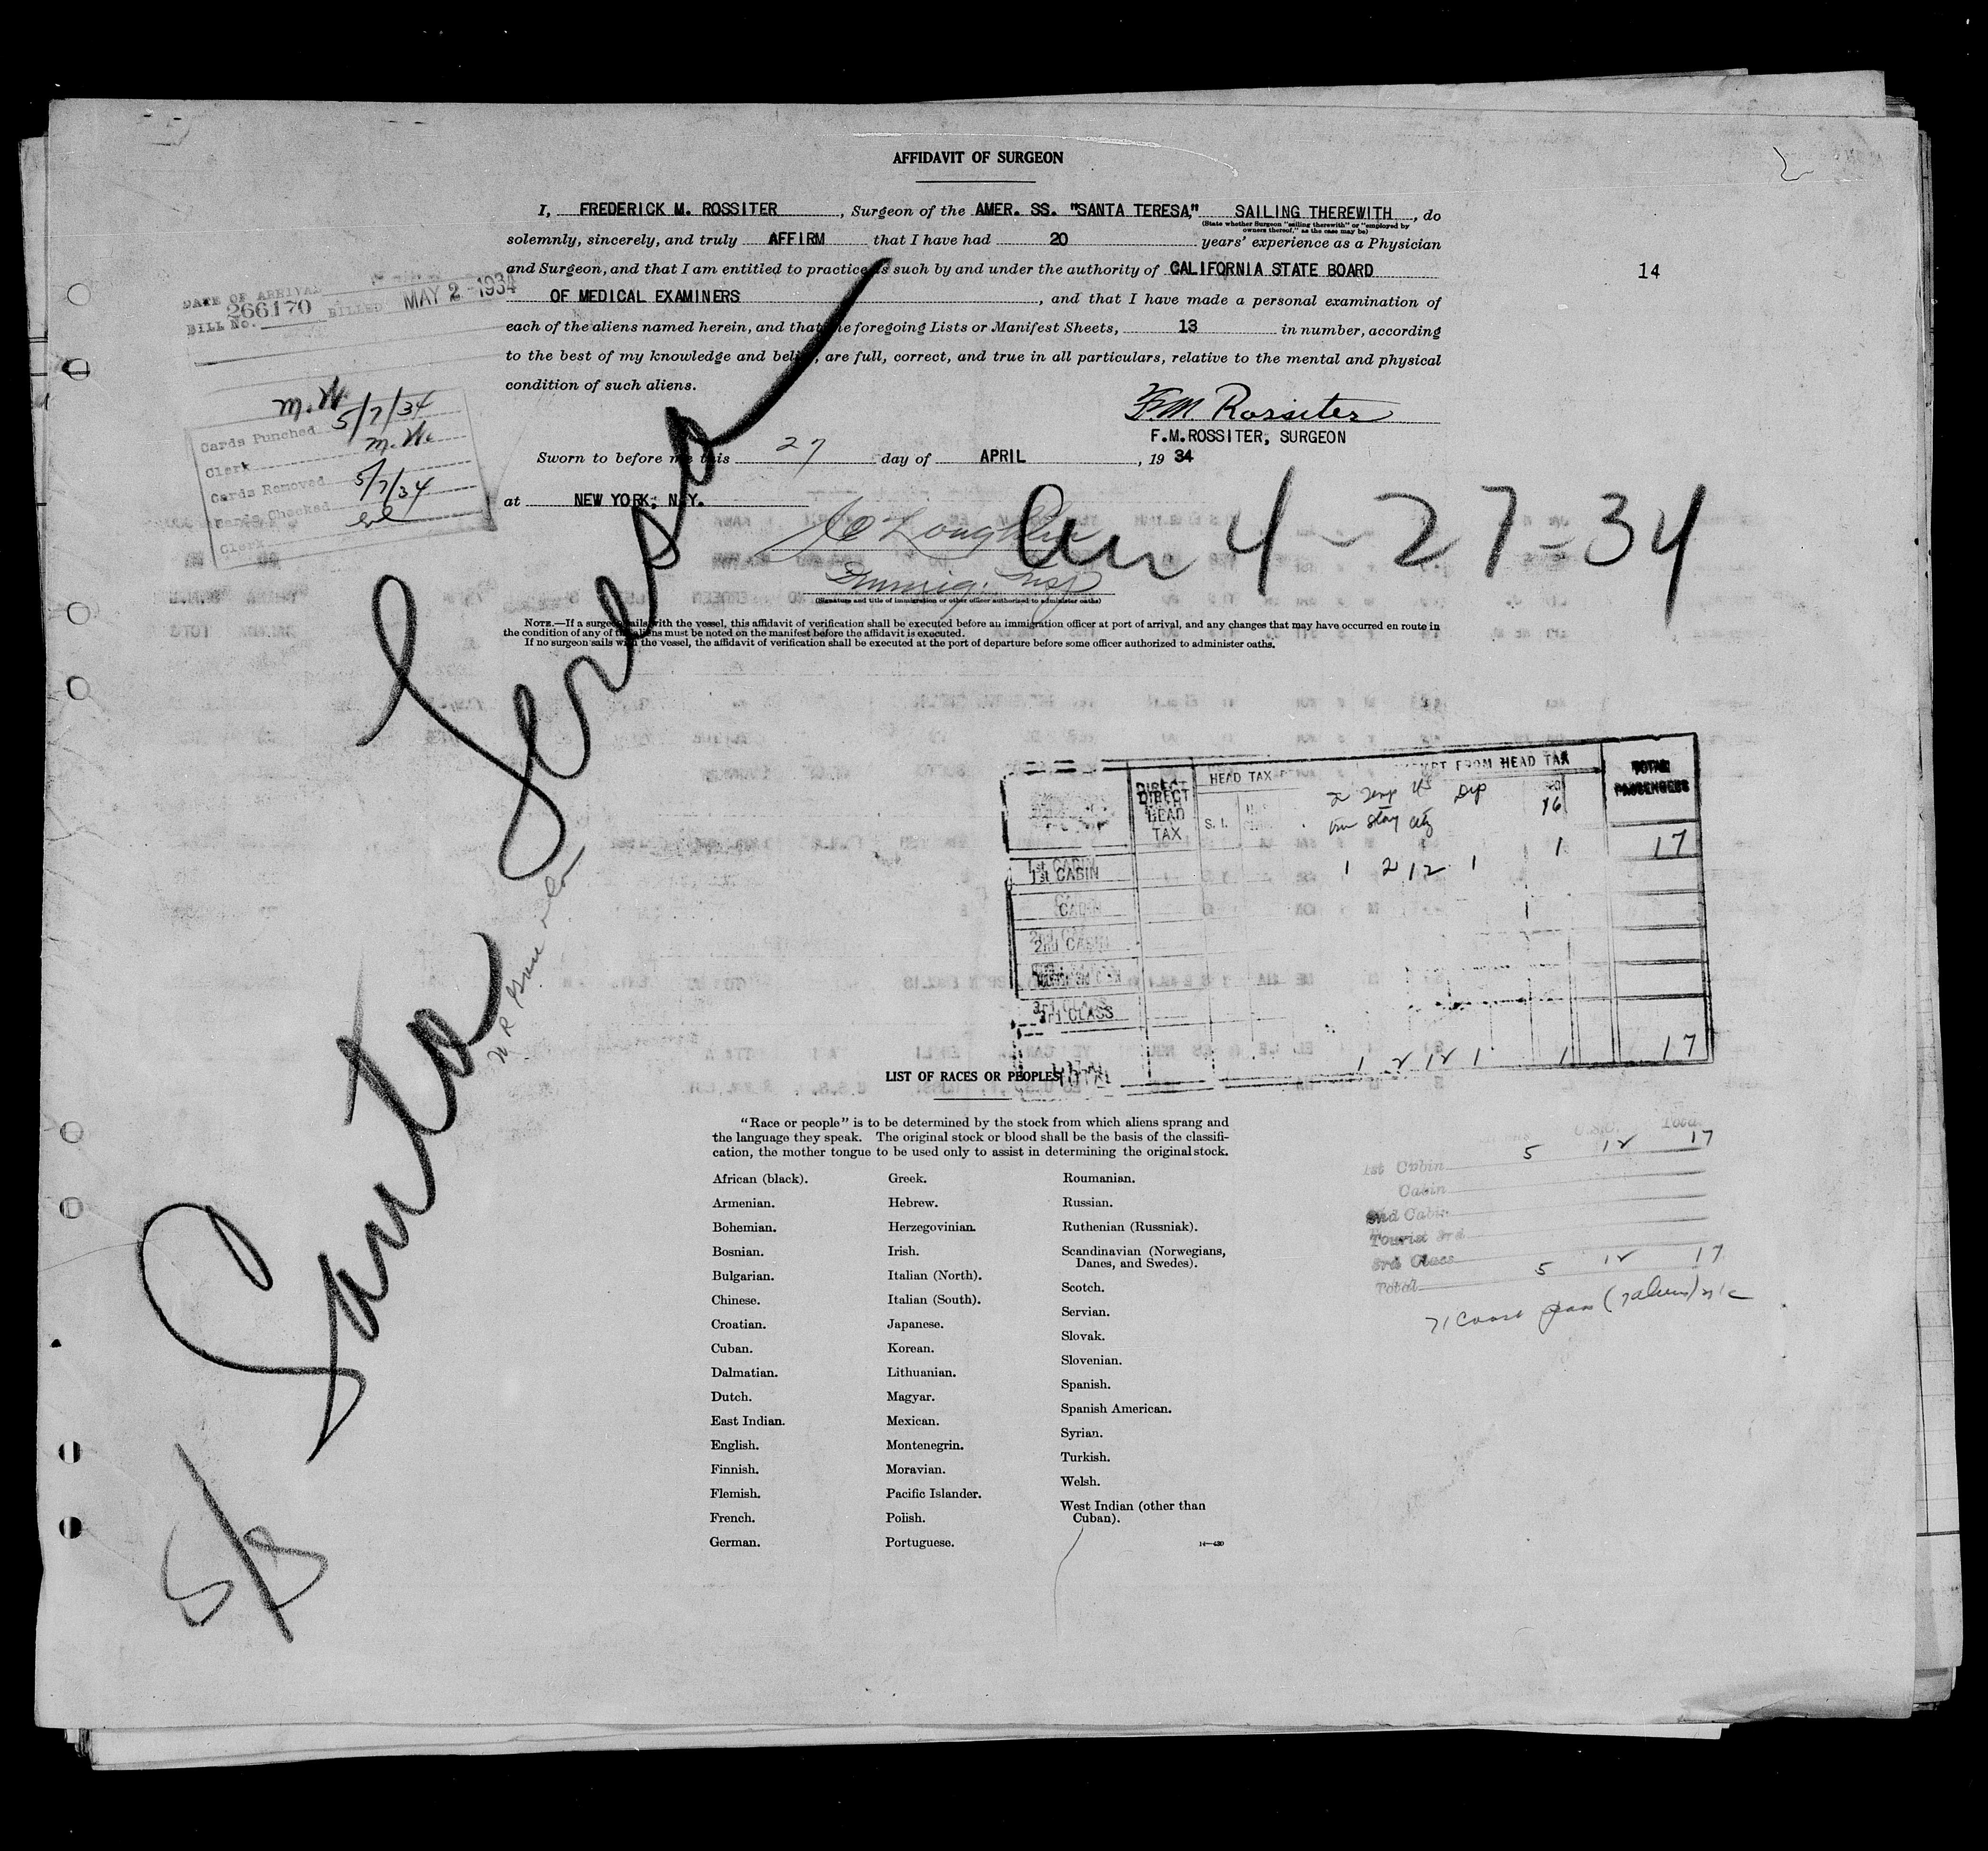 AFFIDAVIT OF SURGEON
I, FREDERICK M. ROSSITER, Surgeon of the AMER. SS. "SANTA TERESA," SAILING THEREWITH, do
(State whether Surgeon "sailing therewith" or "employed by
owners thereof," as the case may be)
solemnly, sincerely, and truly AFFIRM that I have had 20 years' experience as a Physician
and Surgeon, and that I am entitled to practice as such by and under the authority of CALIFORNIA STATE BOARD
14
OF MEDICAL EXAMINERS, and that I have made a personal examination of
each of the aliens named herein, and that the foregoing Lists or Manifest Sheets, 13 in number, according
to the best of my knowledge and belief, are full, correct, and true in all particulars, relative to the mental and physical
condition of such aliens.
DATE OF ARRIVAL
BILL No. 266170 BILLED MAY 2 - 1934
M. W.
Cards Punched 5/7/34
Clerk M. W.
Cards Removed
Cards Checked 5/7/34
Clerk
F M Rossiter
F.M.ROSSITER, SURGEON
Sworn to before me this 27 day of APRIL, 19 34
at NEW YORK, N.Y.
Immig. Insp
(Signature and title of immigration or other officer authorized to administer oaths)
Arr 4-27-34
NOTE.—If a surgeon sails with the vessel, this affidavit of verification shall be executed before an immigration officer at port of arrival, and any changes that may have occurred en route in
the condition of any of the aliens must be noted on the manifest before the affidavit is executed.
If no surgeon sails with the vessel, the affidavit of verification shall be executed at the port of departure before some officer authorized to administer oaths.
Santa Teresa
5/8
DIRECT HEAD TAX
HEAD TAX
EXEMPT FROM HEAD TAX
TOTAL PASSENGERS
S. I.
1st CABIN 1 2 12 1 1 17
CABIN
2nd CABIN
3rd CLASS
TOTAL 1 2 12 1 1 17
LIST OF RACES OR PEOPLES
"Race or people" is to be determined by the stock from which aliens sprang and
the language they speak. The original stock or blood shall be the basis of the classifi-
cation, the mother tongue to be used only to assist in determining the original stock.
African (black).
Armenian.
Bohemian.
Bosnian.
Bulgarian.
Chinese.
Croatian.
Cuban.
Dalmatian.
Dutch.
East Indian.
English.
Finnish.
Flemish.
French.
German.
Greek.
Hebrew.
Herzegovinian.
Irish.
Italian (North).
Italian (South).
Japanese.
Korean.
Lithuanian.
Magyar.
Mexican.
Montenegrin.
Moravian.
Pacific Islander.
Polish.
Portuguese.
Roumanian.
Russian.
Ruthenian (Russniak).
Scandinavian (Norwegians,
Danes, and Swedes).
Scotch.
Servian.
Slovak.
Slovenian.
Spanish.
Spanish American.
Syrian.
Turkish.
Welsh.
West Indian (other than
Cuban).
14—430
U.S.C. Total
1st Cabin 5 12 17
Cabin
2nd Cabin
Tourist 3rd
3rd Class
Total 5 12 17